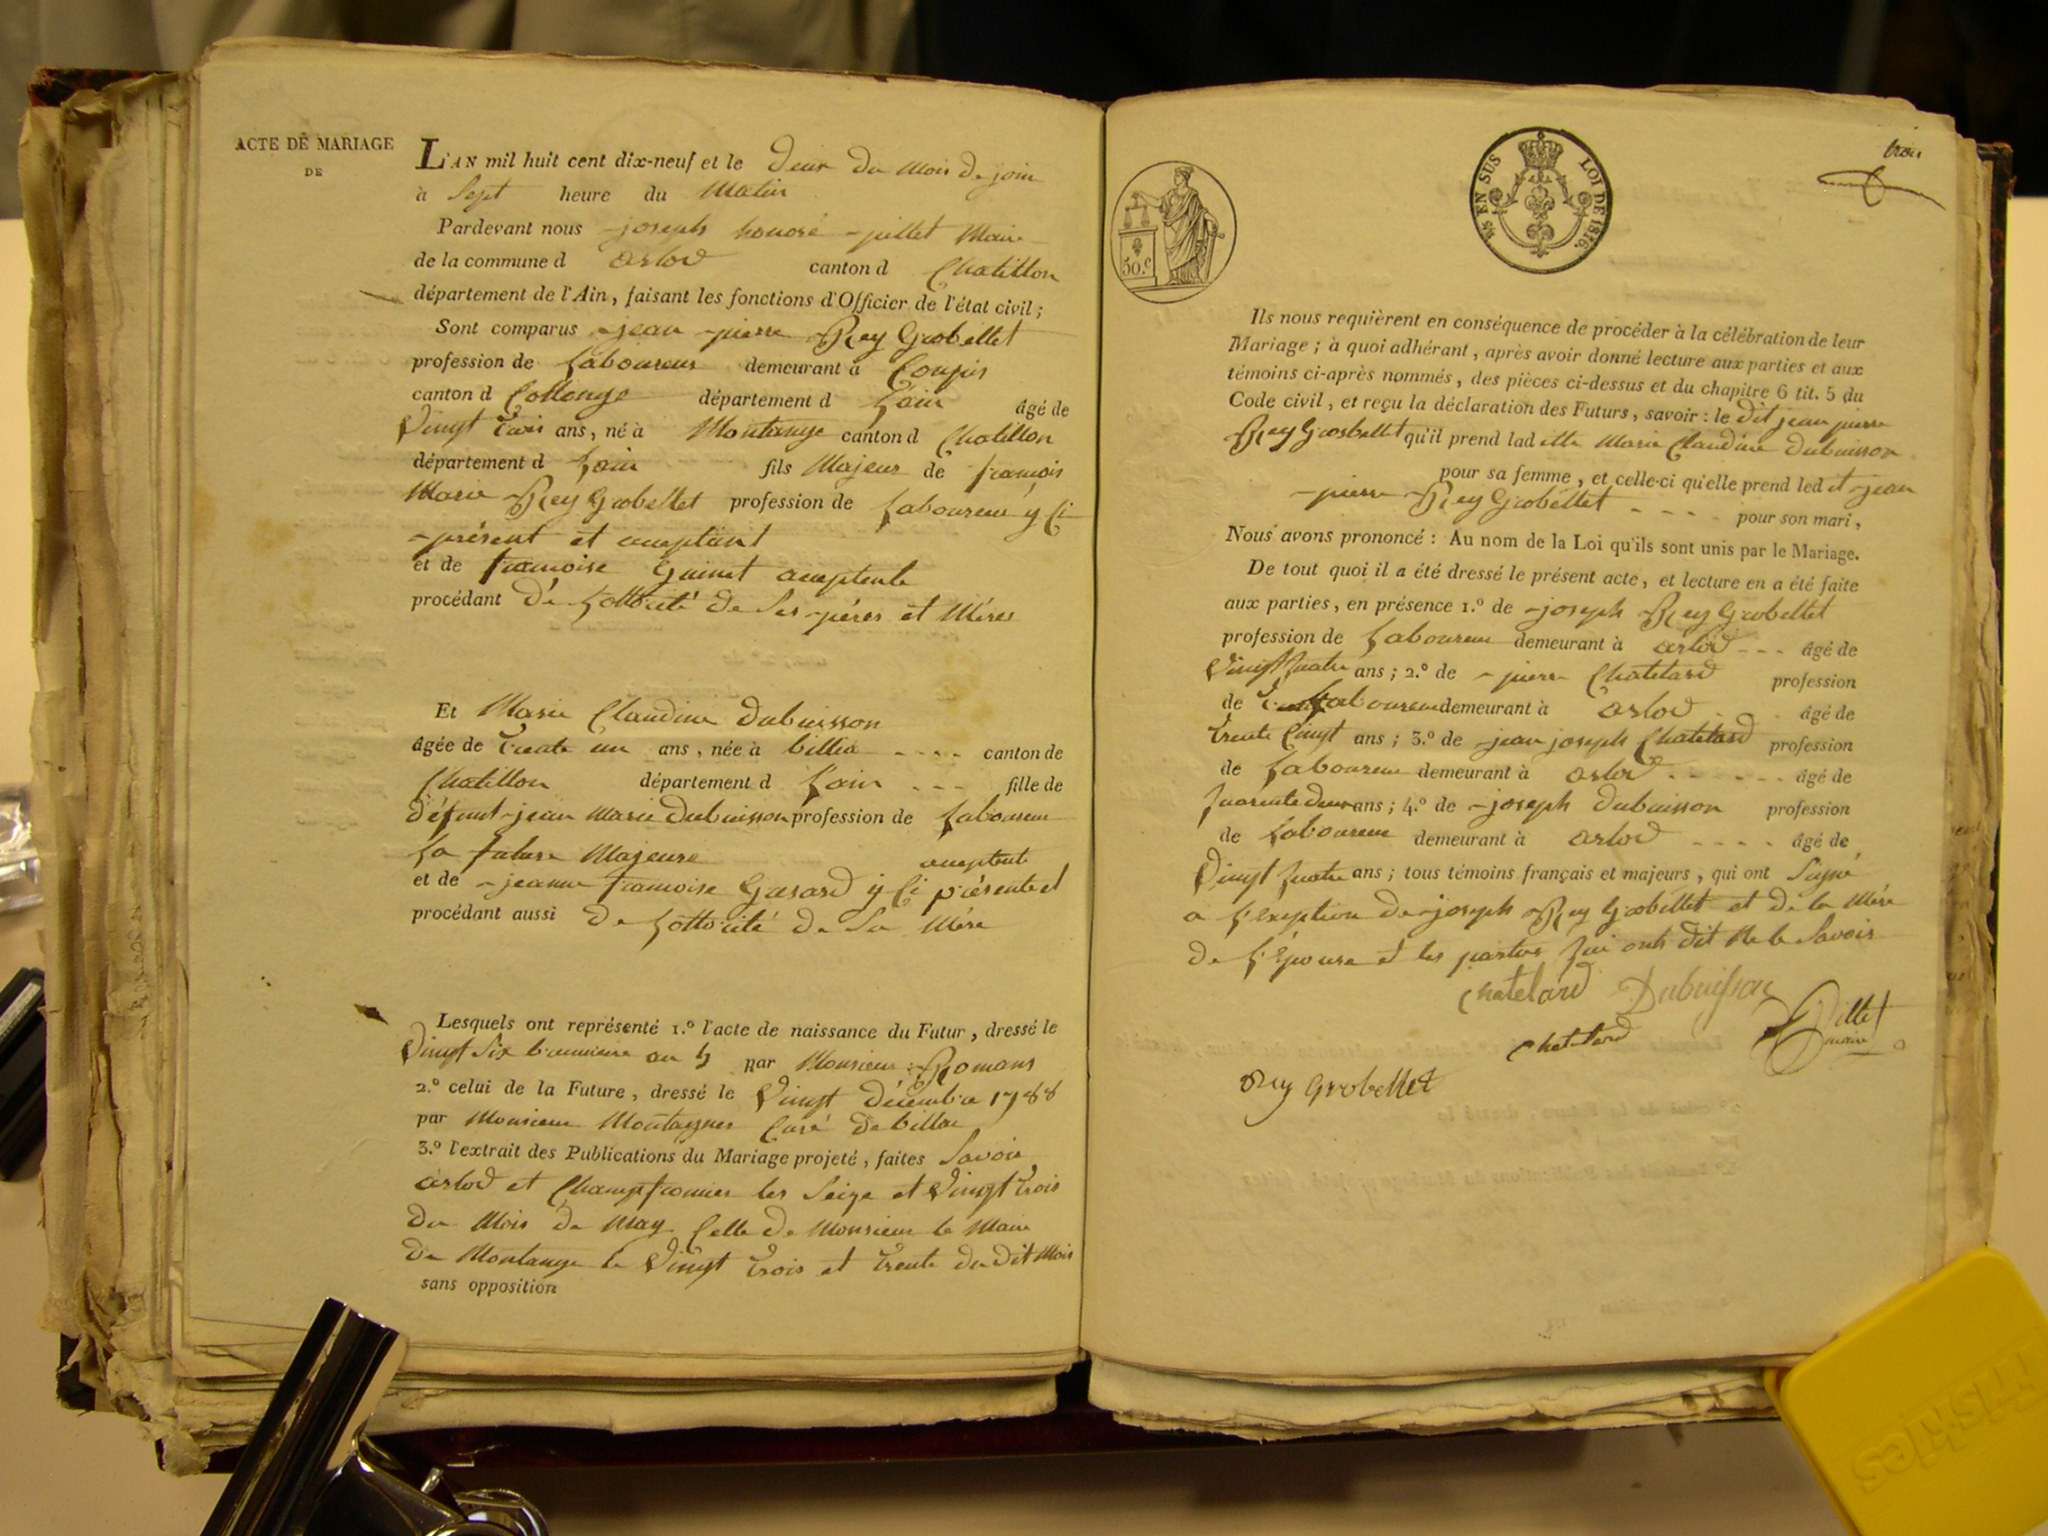 ACTE DE MARIAGE
DE
L'AN mil huit cent dix-neuf et le Deux Du Mois De join
à Sept heure du Matin
Pardevant nous joseph honoré pillet Maire
de la commune d arlod canton d Chatillon
département de l'Ain, faisant les fonctions d'Officier de l'état civil ;
Sont comparus jean pierre Rey Grobellet
profession de Laboureur demeurant à Confort
canton d Collonge département d Lain âgé de
Vingt Trois ans, né à Montange canton d Chatillon
département d Lain fils Majeur de francois
Marie Rey Grobellet profession de Laboureur y Ci
présent et aceptant
et de francoise Guinet aceptente
procédant De Lottorité De Ses péres et Méres
Et Marie Claudine dubuisson
âgée de Trente un ans, née à billia canton de
Chatillon département d Lain fille de
défunt jean Marie Dubuisson profession de Laboureur
La future Majeure
aceptent
et de jeanne francoise Gerard y Ci présente et
procédant aussi De Lottorité De Sa Mére
Lesquels ont représenté 1.º l'acte de naissance du Futur, dressé le
Vingt Six an 4 par Monsieur Romans
2.º celui de la Future, dressé le Vingt décembre 1788
par Monsieur Montagner Curé De billia
3.º l'extrait des Publications du Mariage projeté, faites Savoir
arlod et Champfromier les Seize et Vingt Trois
Du Mois De May Celle De Monsieur le Maire
De Montange le Vingt Trois et Trente Du Dit Mois
sans opposition
trois
EN SUS LOI DE 1816.
50.c
Ils nous requièrent en conséquence de procéder à la célébration de leur
Mariage ; à quoi adhérant, après avoir donné lecture aux parties et aux
témoins ci-après nommés, des pièces ci-dessus et du chapitre 6 tit. 5 du
Code civil, et reçu la déclaration des Futurs, savoir : le dit jean pierre
Rey Grosbellet qu'il prend lad itte Marie Claudine dubuisson
pour sa femme, et celle-ci qu'elle prend led it jean
pierre Rey Grobellet pour son mari,
Nous avons prononcé : Au nom de la Loi qu'ils sont unis par le Mariage.
De tout quoi il a été dressé le présent acte, et lecture en a été faite
aux parties, en présence 1.º de joseph Rey Grobellet
profession de Laboureur demeurant à arlod âgé de
Vingt quatre ans ; 2.º de pierre Chatelard profession
de Laboureur demeurant à arlod âgé de
Trente Cinq ans ; 3.º de jean joseph Chatelard profession
de Laboureur demeurant à arlod âgé de
quarente deux ans ; 4.º de joseph dubuisson profession
de Laboureur demeurant à arlod âgé de
Vingt quatre ans ; tous témoins français et majeurs, qui ont Signé
a L'exeption de joseph Rey Grobellet et de la Mére
De L'épouse et les parties qui onts dit Ne le Savoir
chatelard Dubuisson
chatelard Pillet
maire
Rey Grobellet
Friskies